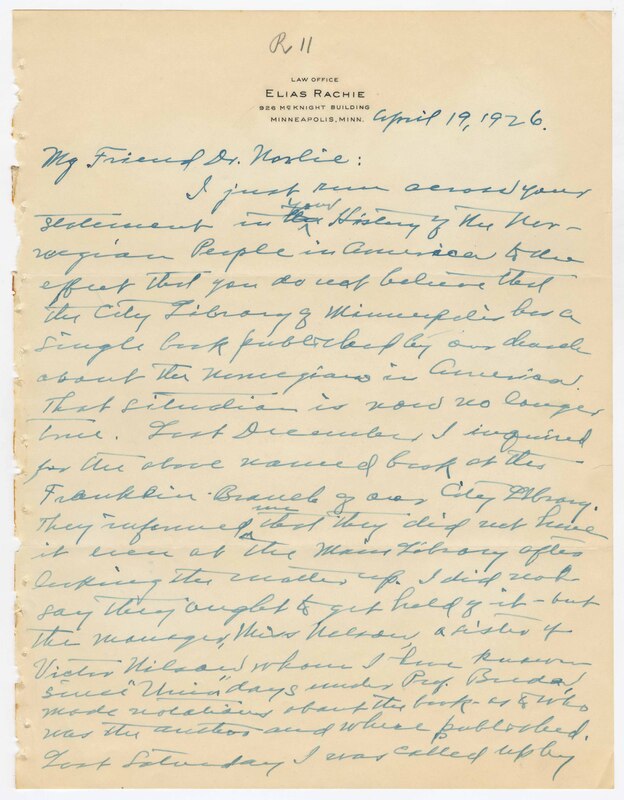 R 11
LAW OFFICE
ELIAS RACHIE
926 McKNIGHT BUILDING
MINNEAPOLIS, MINN.
April 19, 1926.
My Friend Dr. Norlie:
I just run across your
your
statement in the History of the Nor-
wegian People in America to the
effect that you do not believe that
the City Library of Minneapolis has a
single book published by our church
about the Norwegians in America.
That situation is now no longer
true. Last December I inquired
for the above named book at the
Franklin Branch of our City Library.
me
They informed that they did not have
it even at the Main Library after
looking the matter up. I did not
say they ought to get hold of it - but
the manager, Miss Nelson, a sister of
Victor Nilson whom I have known
since "Univ" days under Prof. Breda,
made notations about the book - as to who
was the author and where published.
Last Saturday I was called up by